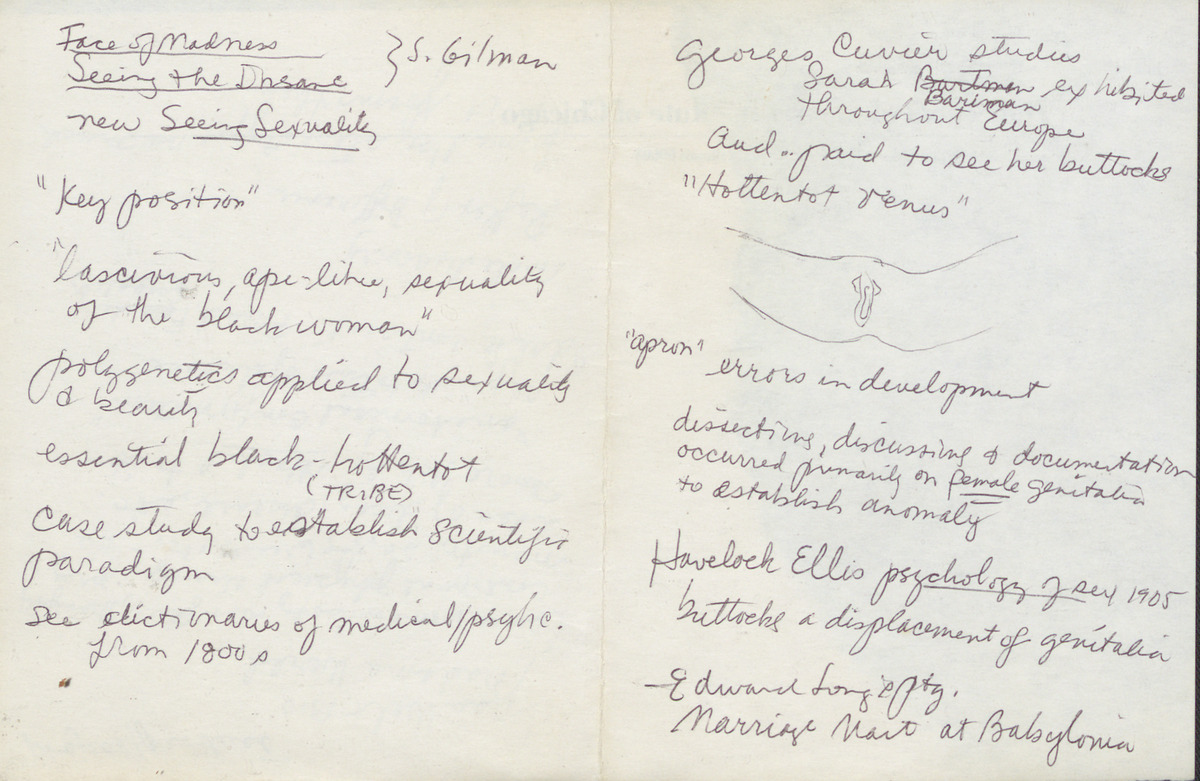 Face of Madness
Seeing the Insane
} S. Gilman
new Seeing Sexuality
"Key position"
"lascivious, ape-like, sexuality
of the black woman"
polygenetics applied to sexuality
& beauty
essential black - hottentot
(TRIBE)
case study to "establish" scientific
paradigm
see dictionaries of medical/psyhc.
from 1800s
Georges Cuvier studies
Sarah Bartman exhibited
Bartman
throughout Europe
Aud.. paid to see her buttocks
"Hottentot Venus"
"apron"
errors in development
dissecting, discussing & documentation
occurred primarily on female genitalia
to establish anomaly
Havelock Ellis psychology of sex 1905
buttocks a displacement of genitalia
- Edward Long's ptg.
Marriage Mart at Babylonia